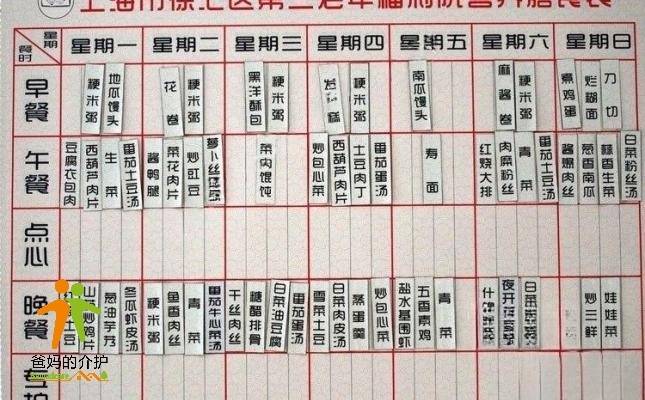 上海市徐汇区第三老年福利院营养膳食表
星期
餐时
星期一
星期二
星期三
星期四
星期五
星期六
星期日
早餐
粳米粥
地瓜馒头
花卷
粳米粥
黑洋酥包
粳米粥
发糕
粳米粥
南瓜馒头
麻酱卷
粳米粥
煮鸡蛋
烂糊面
刀切
午餐
豆腐衣包肉
西葫芦肉片
生菜
番茄土豆汤
酱鸭腿
菜花肉片
炒豇豆
萝卜丝
菜肉馄饨
炒包心菜
西葫芦肉片
土豆肉丁
番茄蛋汤
寿面
红烧大排
肉糜粉丝
青菜
番茄土豆汤
酱爆肉丝
葱香南瓜
蒜香生菜
白菜粉丝汤
点心
晚餐
炒鸡片
葱油芋艿
冬瓜虾皮汤
粳米粥
鱼香肉丝
青菜
番茄牛心菜汤
干丝肉丝
糖醋排骨
白菜油豆腐
番茄蛋汤
雪菜土豆
白菜肉皮汤
蒸蛋羹
炒包心菜
盐水基围虾
五香素鸡
青菜
什
夜开
白菜
炒三鲜
娃娃菜
爸妈的介护